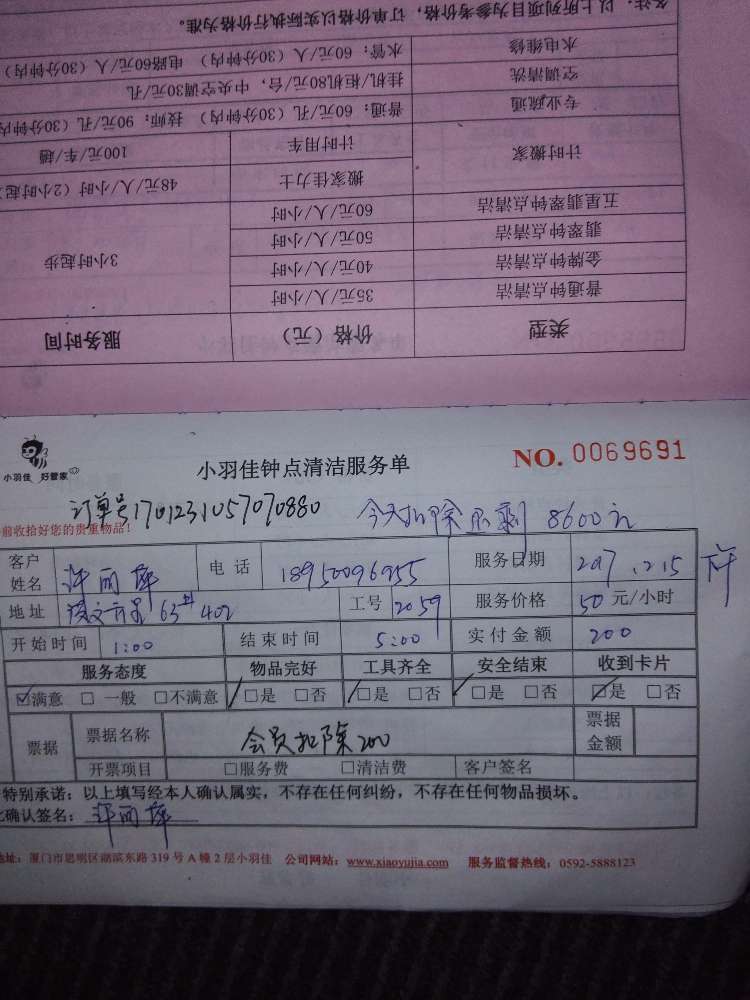 备注：以上所列项目为参考价格，订单价格以实际执行价格为准。
水电维修 水管：60元/人（30分钟内） 电路60元/人（30分钟内）
空调清洗 挂机/柜机80元/台，中央空调30元/孔
专业疏通 普通：60元/孔（30分钟内） 技师：90元/孔（30分钟内
计时搬家 计时用车 100元/车/趟
搬家佳力士 48元/人/小时（2小时起
五星翡翠钟点清洁 60元/人/小时
翡翠钟点清洁 50元/人/小时 3小时起步
金牌钟点清洁 40元/人/小时
普通钟点清洁 35元/人/小时
类型 价格（元） 服务时间
小羽佳 好管家
小羽佳钟点清洁服务单
NO. 0069691
订单号1701231057070880 今天扣除还剩8600元
前收拾好您的贵重物品！
客户姓名 许丽萍 电话 18950096255 服务日期 2017.2.15
地址 63# 402 工号 2059 服务价格 50 元/小时
开始时间 1:00 结束时间 5:00 实付金额 200
服务态度 物品完好 工具齐全 安全结束 收到卡片
☑满意 □一般 □不满意 □是 □否 □是 □否 □是 □否 □是 □否
票据 票据名称 会员扣除200 票据金额
开票项目 □服务费 □清洁费 客户签名
特别承诺：以上填写经本人确认属实，不存在任何纠纷，不存在任何物品损坏。
确认签名：许丽萍
地址：厦门市思明区湖滨东路319号A幢2层小羽佳 公司网站：www.xiaoyujia.com 服务监督热线：0592-5888123